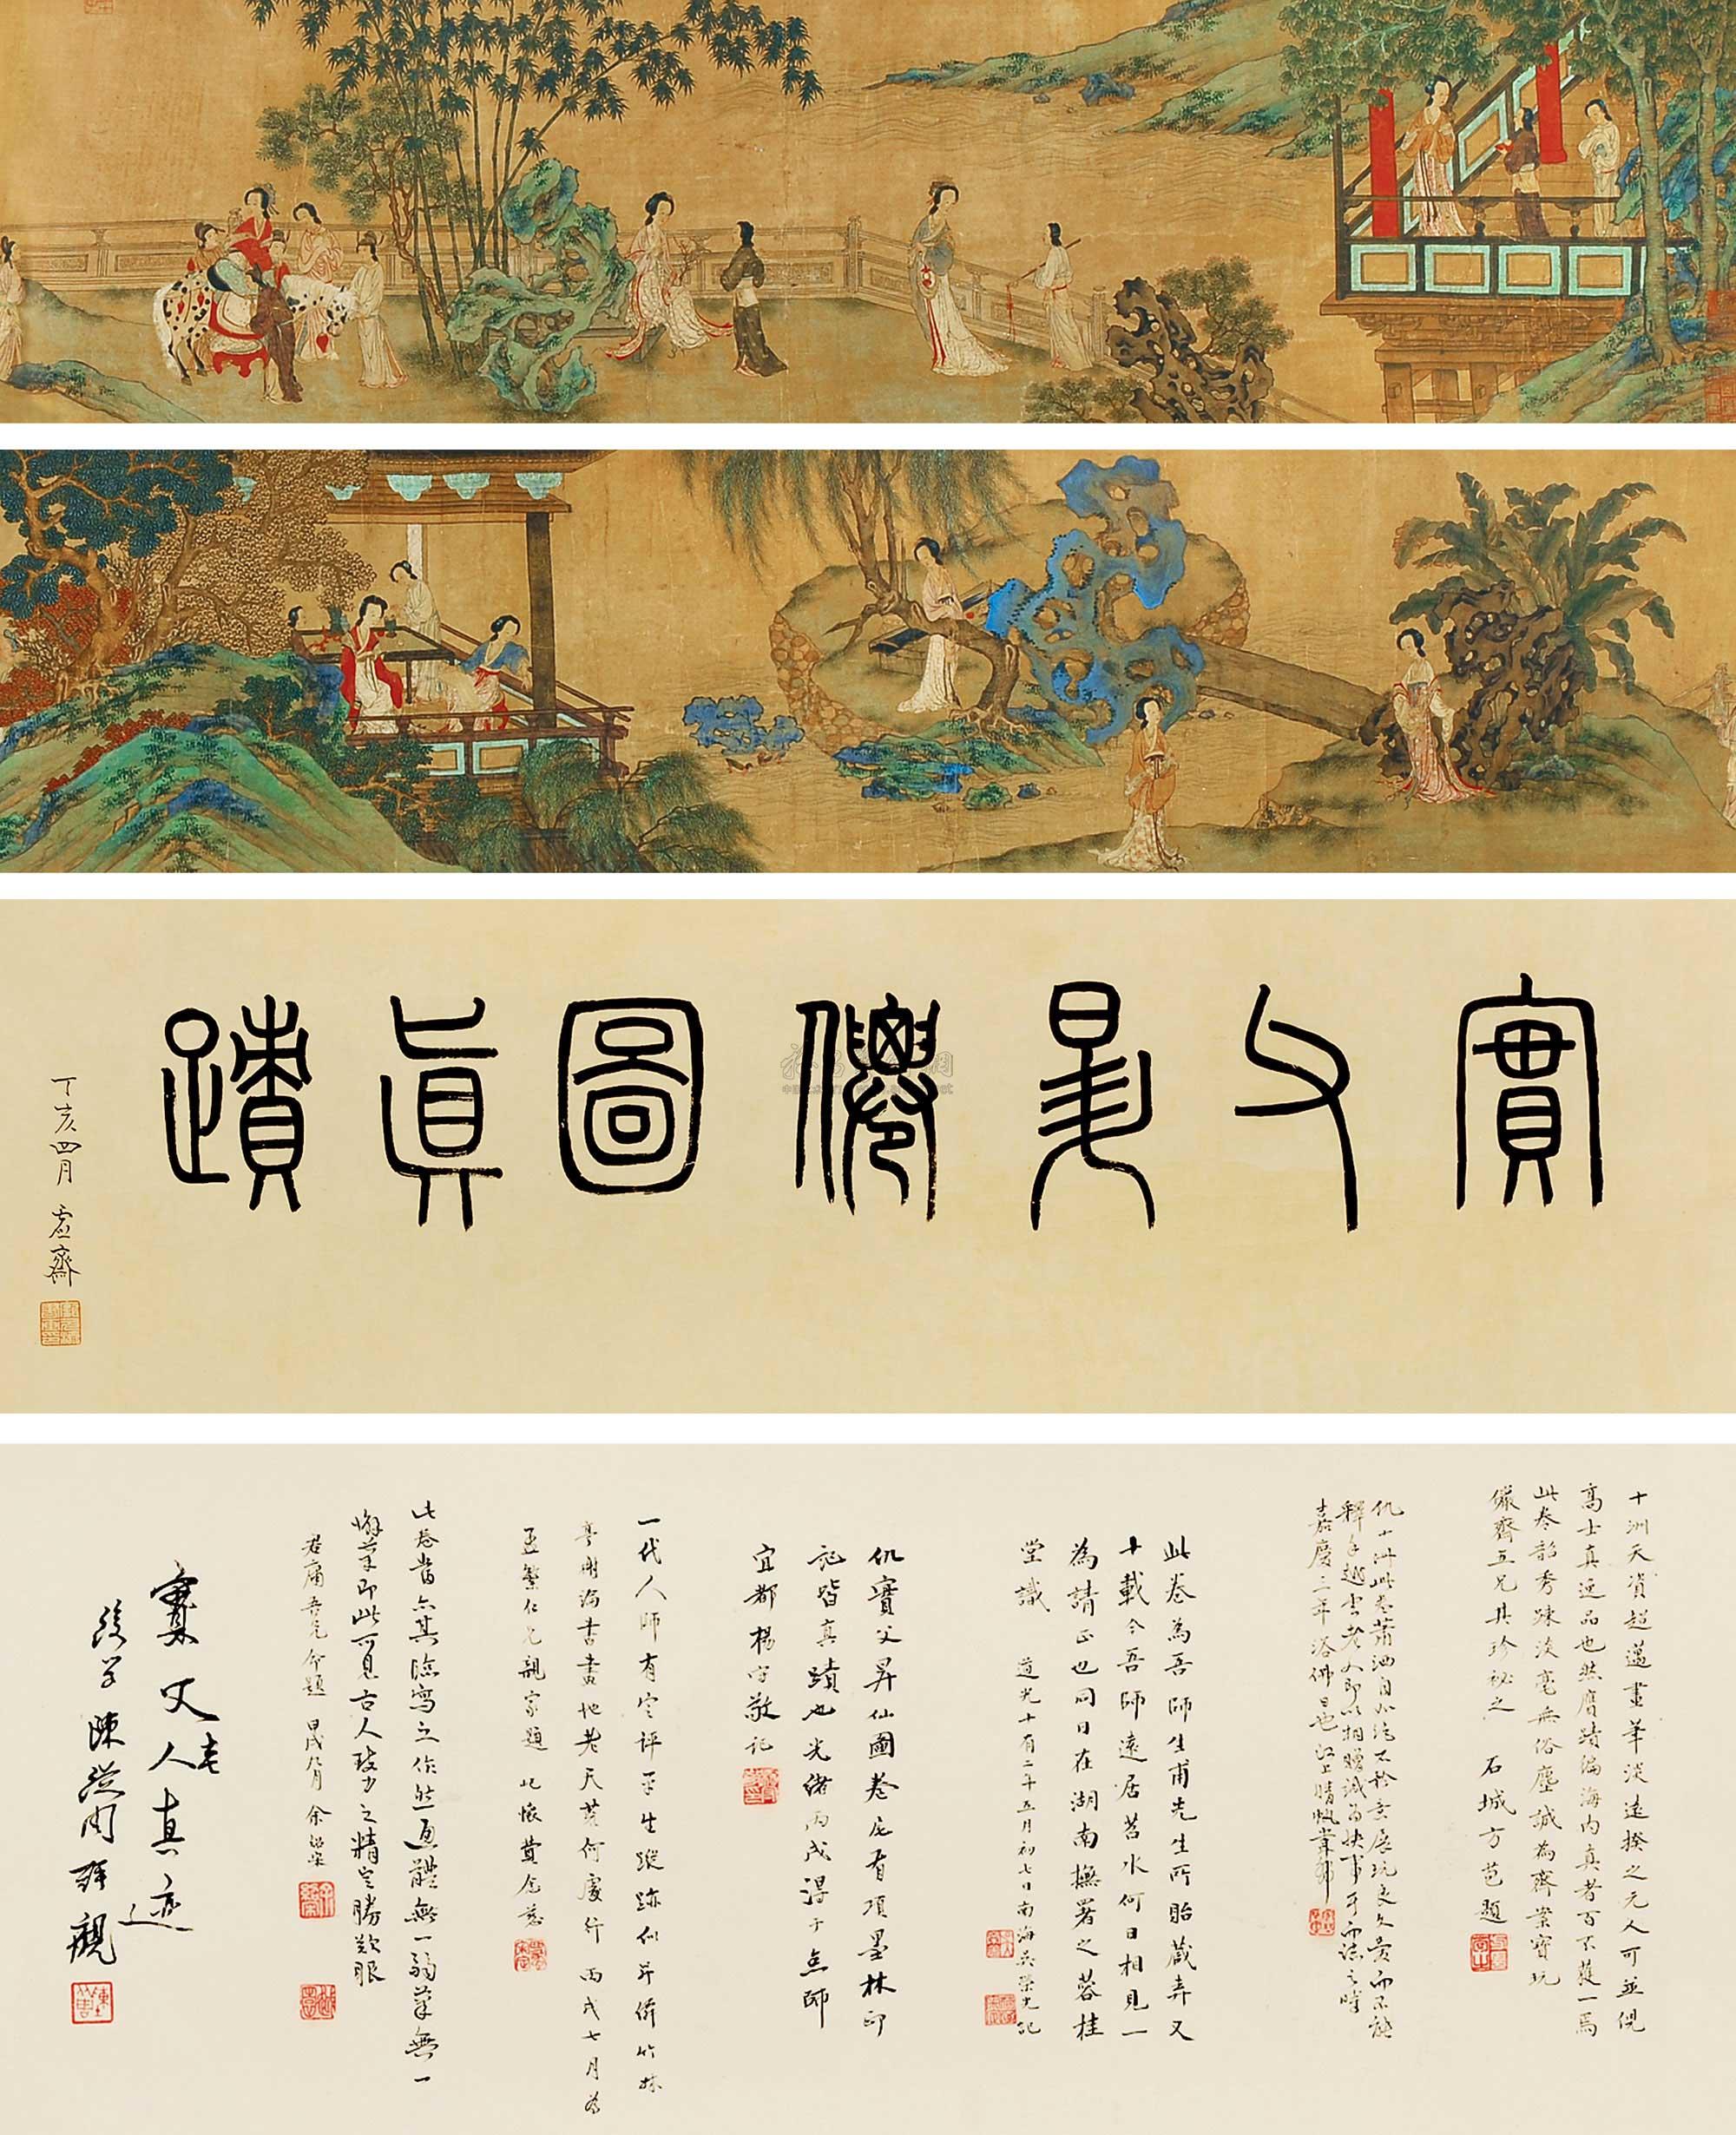 實父昇僊圖真蹟
丁亥四月 虛齋
十洲天資超邁畫筆淡遠揆之元人可並倪
高士真逸品也然贋蹟徧海内真者百不獲一焉
此卷韶秀疎淡毫無俗塵誠為齊案寶玩
儼齋五兄其珍祕之 石城方苞題
仇十洲此卷蕭洒自 展玩良久愛而不能
釋手 老人即以相贈誠為快事 而誌之時
嘉慶二年浴佛日也 江上晴帆
此卷為吾師生甫先生所貽藏弆又
十載今吾師遠居苕水何日相見一
為請正也同日在湖南撫署之蓉桂
堂識 道光十有二年五月初七日南海吳榮光記
仇實父昇仙圖卷尾有項墨林印
記皆真蹟也光緒丙戌得于京師
宜都楊守敬記
一代人師有定評平生蹤跡似 倚竹林
亭謝論書畫地老天荒何處行 丙戌七月為
孟繁仁兄親家題 屺懷費念慈
此卷當亦其臨寫之作然通體無一弱筆無一
懈筆即此可見古人致力之精 勝歎服
君庸吾兄命題 甲戌八月 余紹宋
實父老人真迹
後學陳從周拜觀